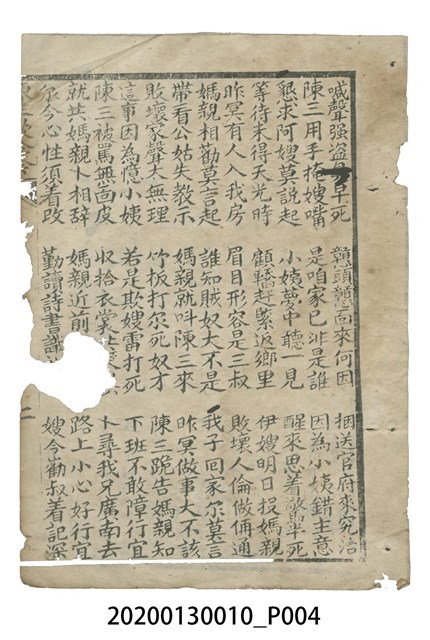 喊聲強盜早死 戇頭戇面來何因 捆送官府來究治
陳三用手掩嫂嘴 是咱家己非是誰 因為小姨錯主意
懇求阿嫂莫說起 小姨夢中聽一見 醒來思着驚死
等待未得天光時 顧轎赶緊返鄉里 伊嫂明日投媽親
昨冥有人入我房 眉目形容是三叔 敗壞人倫做俑通
媽親相勸莫言起 誰知賊奴大不是 我子回家尔莫言
帶看公姑失教示 媽親就叫陳三來 昨冥做事大不該
敗壞家聲太無理 竹板打尔死奴才 陳三跪告媽親知
這事因為憶小姨 若是欺嫂雷打死 下班不敢障行宜
陳三被罵無面皮 收拾衣裳 卜尋我兄廣南去
就共媽親卜相辭 媽親近前 路上小心好行宜
尔今心性須着改 勤讀詩書識 嫂今勸叔着記深
20200130010_P004